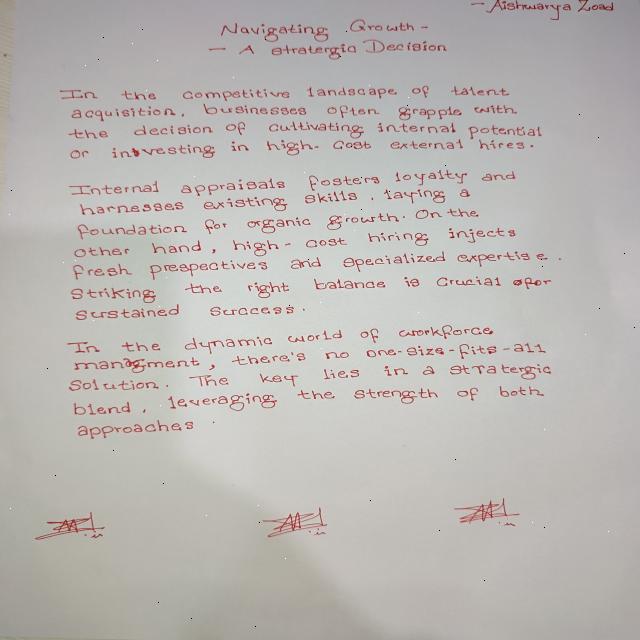 - Aishwarya Zoad
Navigating Growth -
- A stratergic Decision
In the competitive landscape of talent
acquisition, businesses often grapple with
the decision of cultivating internal potential
or investing in high-cost external hires.
Internal appraisals fosters loyalty and
harnesses existing skills, laying a
foundation for organic growth. On the
other hand, high-cost hiring injects
fresh prespectives and specialized expertise.
Striking the right balance is crucial for
sustained success.
In the dynamic world of workforce
managment, there's no one-size-fits-all
solution. The key lies in a stratergic
blend, leveraging the strength of both
approaches.